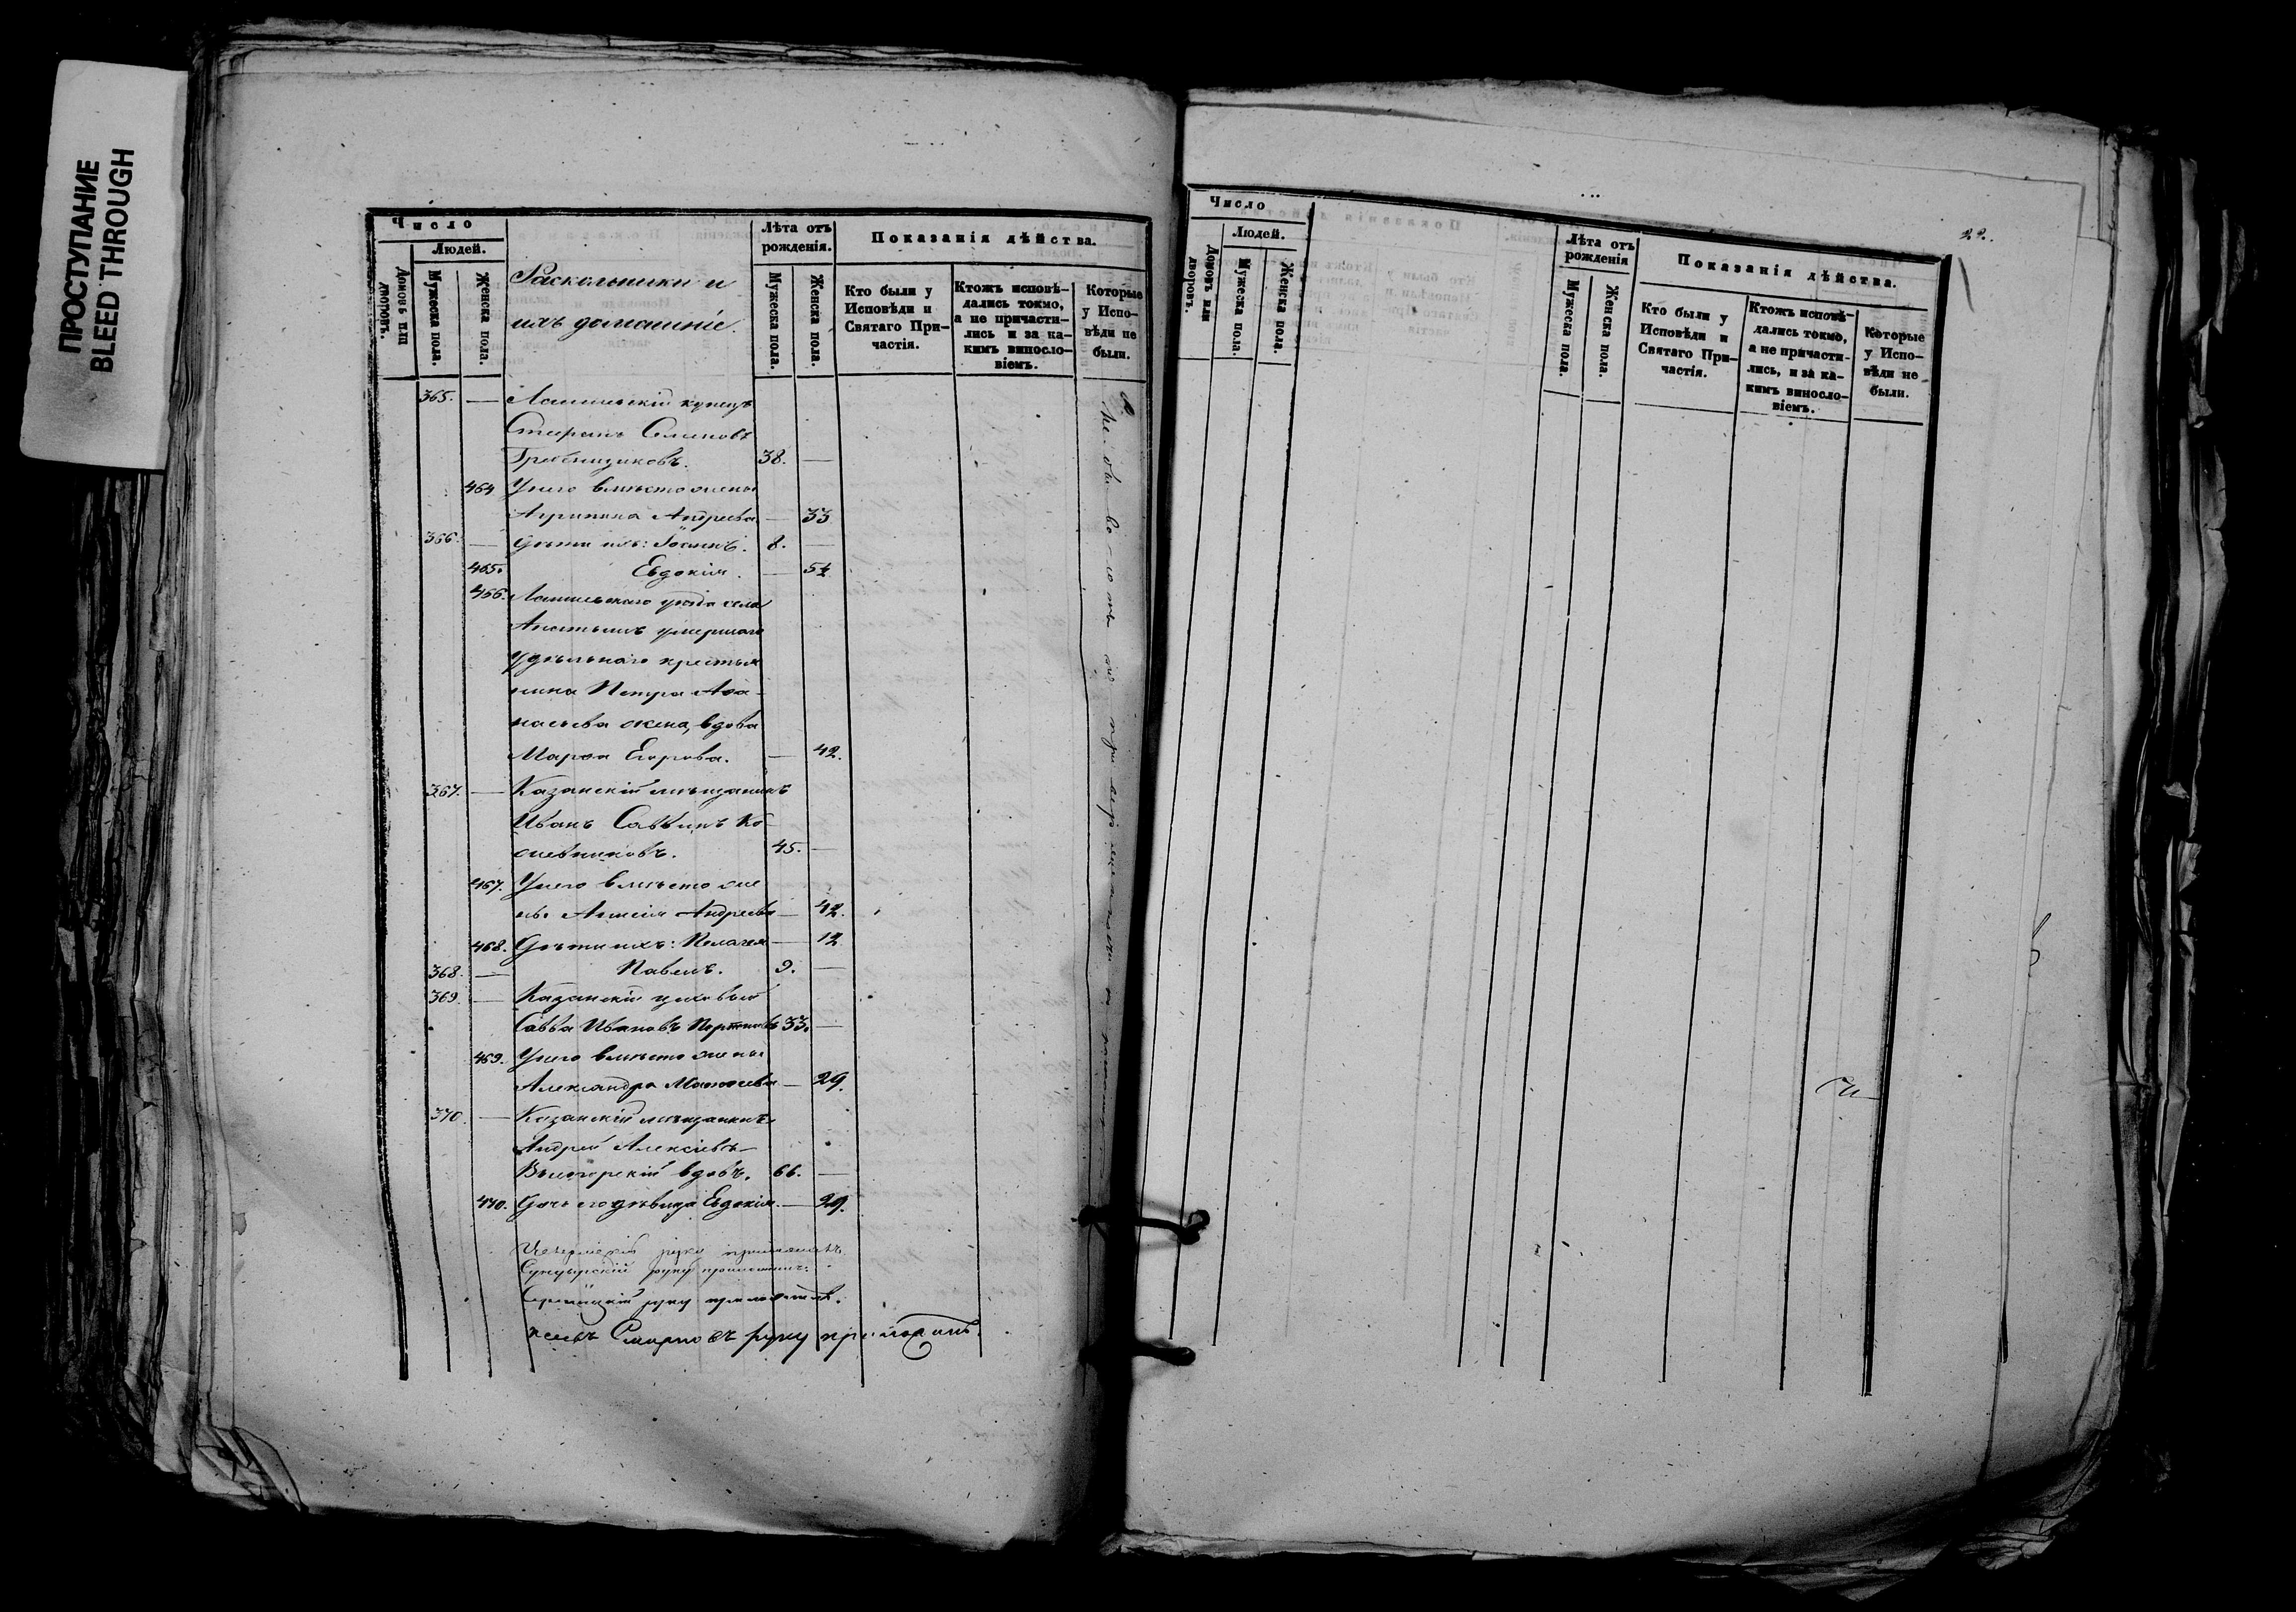 ПРОСТУПАНИЕ
BLEED THROUGH
Число
Людей.
Домовъ или дворовъ.
Мужеска пола.
Женска пола.
Раскольники и
ихъ домашніе.
Лѣта отъ рожденія.
Мужеска пола.
Женска пола.
Показанія дѣйства.
Кто были у Исповѣди и Святаго Причастія.
Ктожъ исповѣдались токмо, а не причастились и за какимъ винословіемъ.
Которые у Исповѣди не были.
365. — Лаишевскій купецъ
Стефанъ Семеновъ
Гребенщиковъ. 38. —
464 У него вмѣсто жены
Агрипина Андреева — 33
366. — Дѣти ихъ: Іоаннъ. 8. —
465. Евдокія. —
466. Лаишевскаго уѣзда села
умершаго
Удѣльнаго крестья
нина Петра Аѳа-
насьева жена, вдова
Марѳа Егорова. — 42.
367. — Казанскій мѣщанинъ
Иванъ Саввинъ Ко-
жевниковъ. 45. —
467. У него вмѣсто же
ны Анисія Андреева — 42.
468. Дѣти ихъ: Пелагея — 12
368. — Павелъ. 9. —
369. — Казанскій цеховый
Савва Ивановъ 33. —
469. У него вмѣсто жены
Александра Матѳеева — 29.
370. — Казанскій мѣщанинъ
Андрей Алексіевъ
Высогорскій вдовъ. 66. —
470. Дочь его дѣвица Евдокія. — 29.
руку приложилъ
руку приложилъ.
руку приложилъ.
Смирновъ руку приложилъ.
Число
Людей.
Домовъ или дворовъ.
Мужеска пола.
Женска пола.
Лѣта отъ рожденія
Мужеска пола.
Женска пола.
Показанія дѣйства.
Кто были у Исповѣди и Святаго Причастія.
Ктожъ исповѣдались токмо, а не причастились, и за какимъ винословіемъ.
Которые у Исповѣди не были.
22.